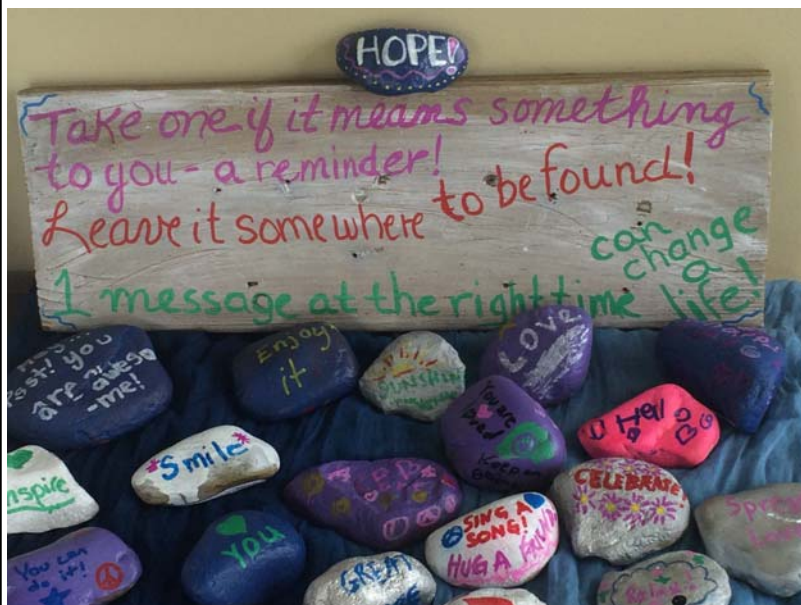 HOPE!
Take one if it means something
to you - a reminder!
Leave it somewhere to be found!
1 message at the right time can
change
a
life!
Psst! you
are aweso
-me!
Enjoy
it
SUNSHINE
LOVE
You are
Keep on
Smile
nspire
CELEBRATE!
SING A
SONG!
HUG A FRIEND
You can
do it!
YOU
GREAT